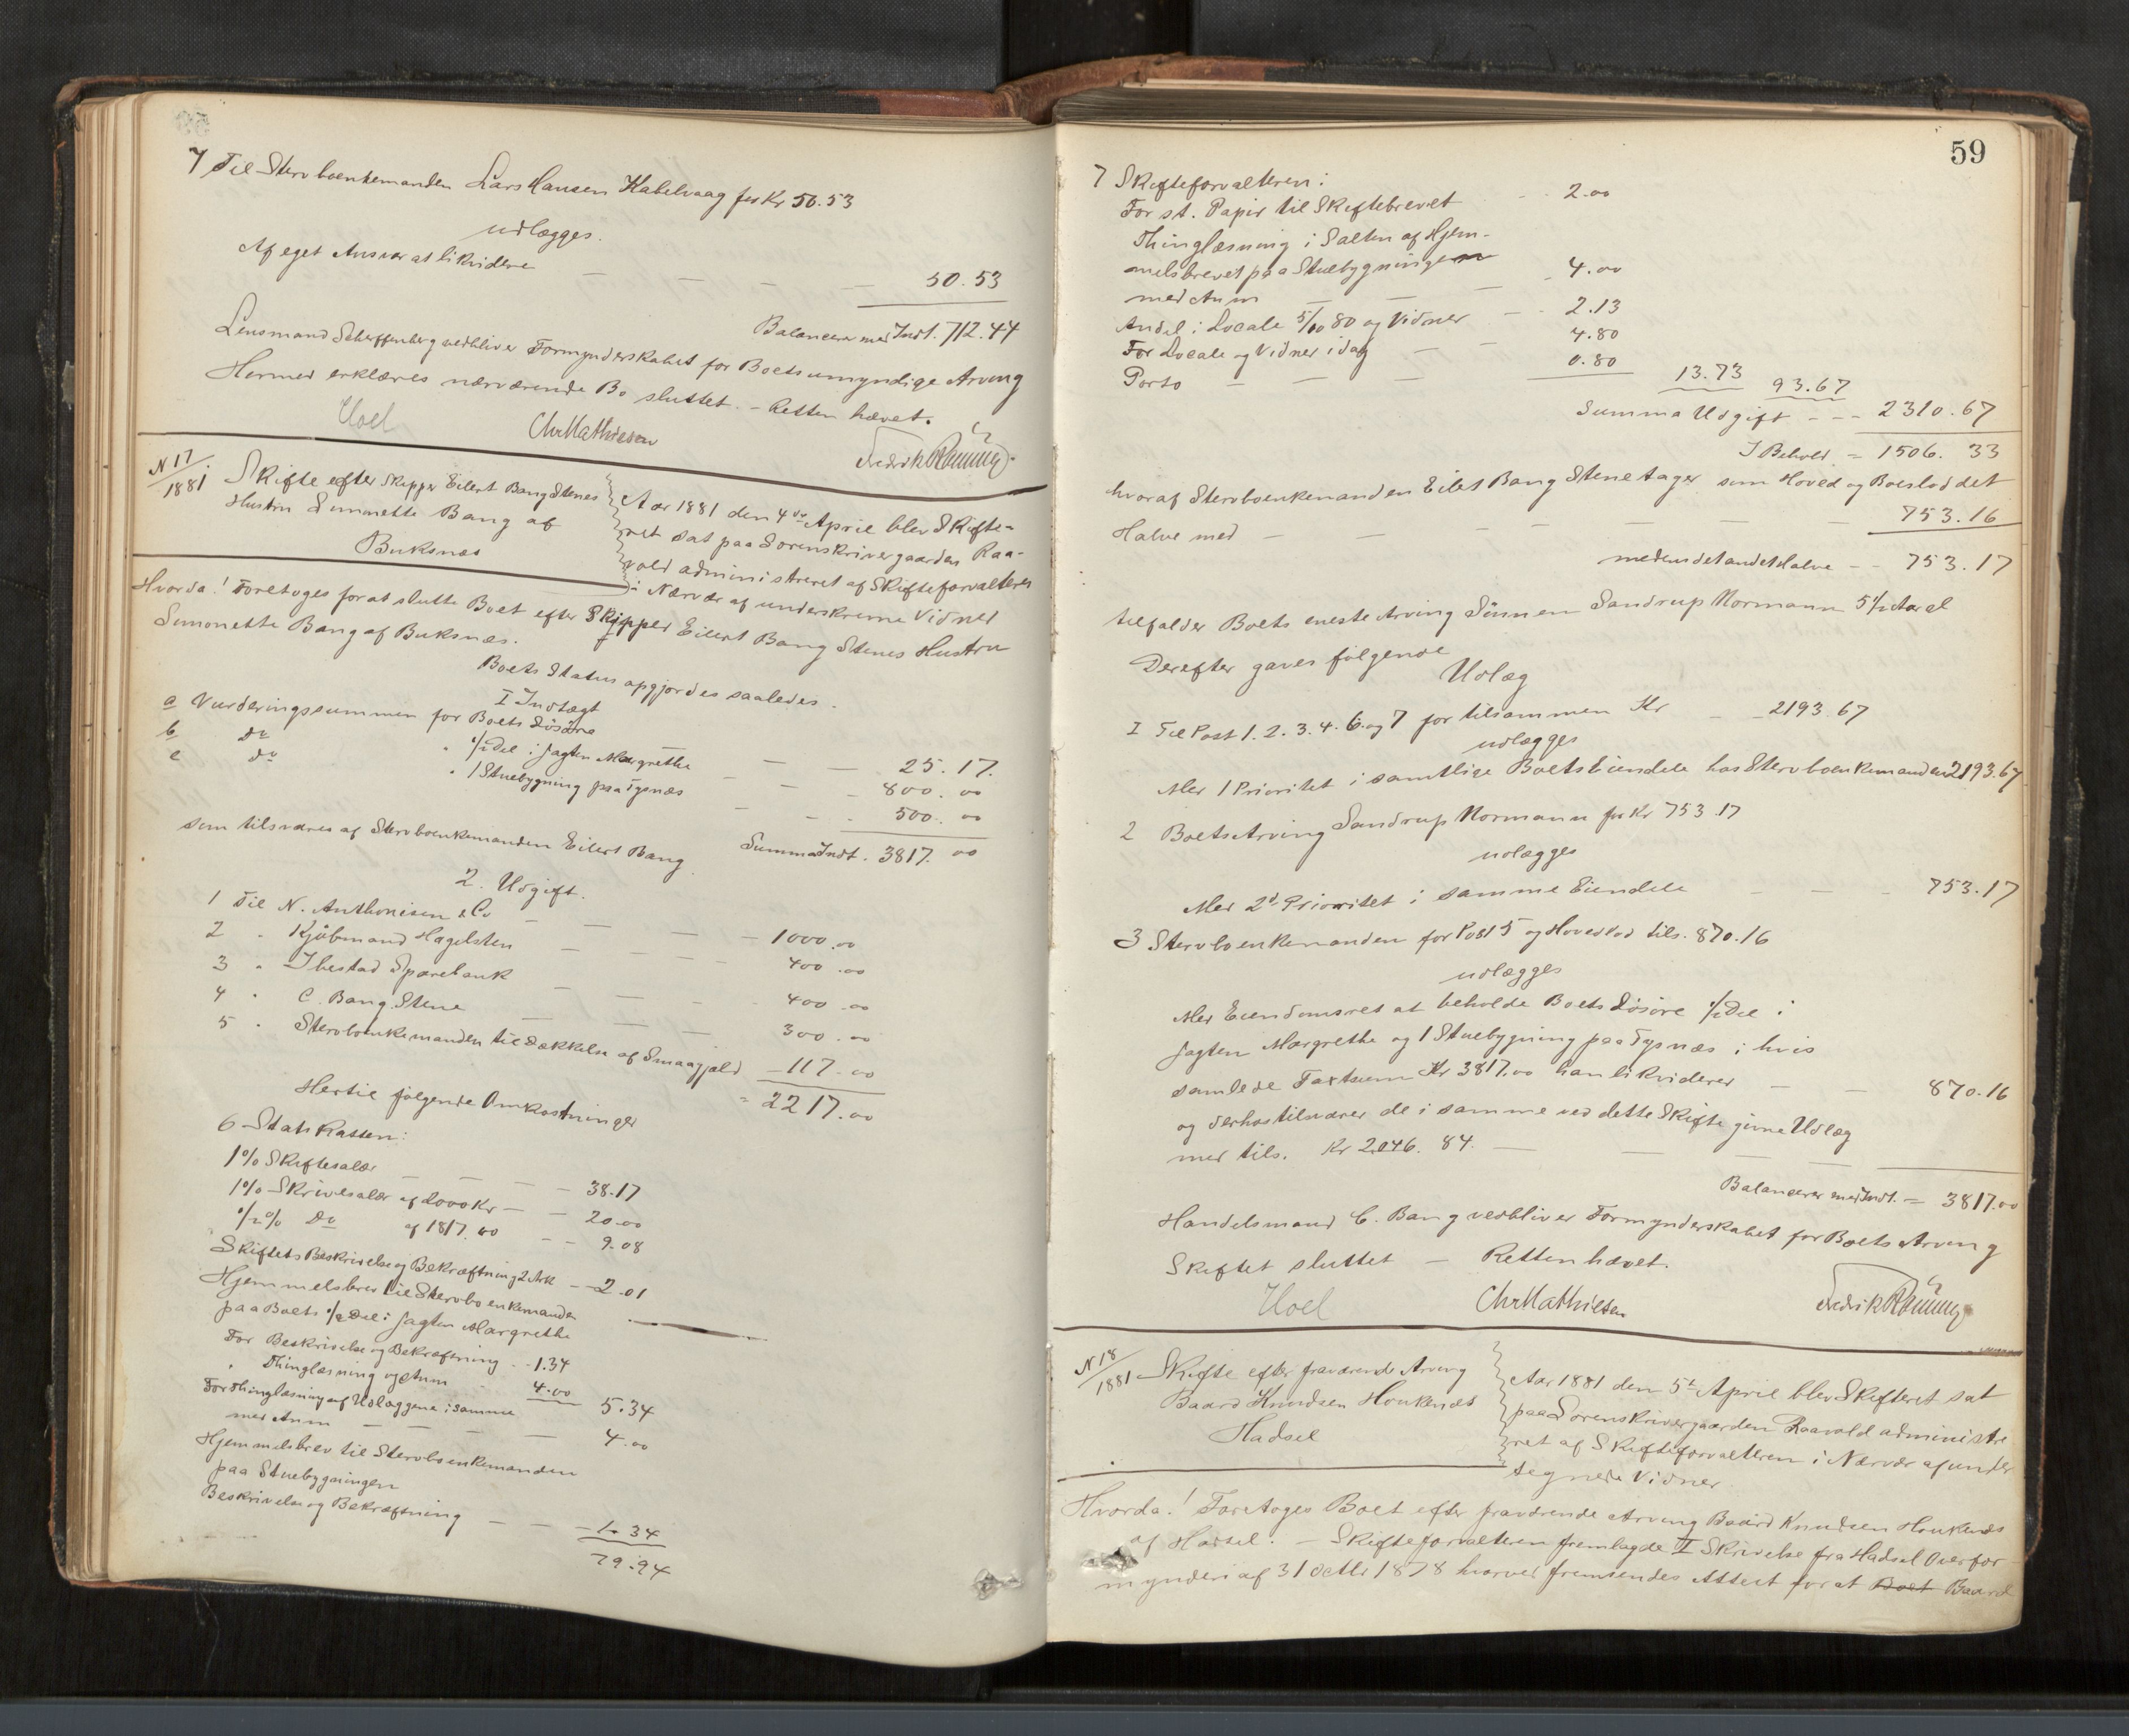 7 Til Stervboenkemanden Lars Hansen Kabelvaag for Kr 50.53
udlægges.
Af eget Ansvar at likvidere — — — — 50.53
Balancerer med Indt. 712.44
Lensmand Scheffenberg vedbliver Formynderskabet for Boets umyndige Arving
Hermed erklæres nærværende Bo sluttet. – Retten hævet.
Hoel Chr Mathiesen Fredrik Rønning
N 17
1881
Skifte efter Skipper Eilert Bang Stenes
Hustru Simonette Bang af
Buksnæs
Aar 1881 den 4de April blev Skifte-
ret sat paa Sorenskrivergaarden Raa-
vold administreret af Skifteforvalteren
i Nærvær af underskrevne Vidner
Hvorda! Foretoges for at slutte Boet efter Skipper Eilert Bang Stenes Hustru
Simonette Bang af Buksnæs.
Boets Status opgjordes saaledes.
I Indtægt
a Vurderingssummen for Boets Løsøre — — 25.17.
b Do " 1/2 Del i Jagten Margrethe — — 800.00
c Do " 1 Stuebygning paa Tysnæs — — 500.00
Summa Indt. 3817.00
som tilsvares af Stervboenkemanden Eilert Bang
2. Udgift.
1 Til N. Anthonisen & Co — — — — 1000.00
2 " Kjøbmand Hagelsten — — — — 400.00
3 " Ibestad Sparebank — — — — 400.00
4 " C. Bang Stene — — — — 300.00
5 " Stervboenkemanden til Dækkelse af Smaagjæld — 117.00
= 2217.00
Hertil følgende Omkostninger
6 Statskassen:
1% Skiftesalær — — — — 38.17
1% Skrivesalær af 2000 Kr — — 20.00
1/2% Do af 1817.00 — — 9.08
Skiftets Beskrivelse og Bekræftning 2 Ark — 2.01
Hjemmelsbrev til Stervboenkemanden
paa Boets 1/2 Del i Jagten Margrethe
For Beskrivelse og Bekræftning — 1.34
" Thinglæsning og Anm — 4.00 5.34
For Thinglæsning af Udlæggene i samme
med Anm — — — — 4.00
Hjemmelsbrev til Stervboenkemanden
paa Stuebygningen
Beskrivelse og Bekræftning — — 1.34
79.94
59
7 Skifteforvalteren:
For st. Papir til Skiftebrevet — 2.00
Thinglæsning i Salten af Hjem-
melsbrevet paa Stuebygningen
med Anm — — — 4.00
Andel i Locale 5/10 80 og Vidner — 2.13
For Locale og Vidner idag — — 4.80
Porto — — — 0.80 13.73 93.67
Summa Udgift — — 2310.67
I Behold = 1506.33
hvoraf Stervboenkemanden Eilert Bang Stene tager som Hoved og Boeslod det
Halve med — — — — — 753.16
medens det andet Halve — 753.17
tilfalder Boets eneste Arving Sønnen Sandrup Normann 5 1/2 Aar gl
Derefter gaves følgende
Udlæg
I Til Post 1. 2. 3. 4. 6. og 7 for tilsammen Kr — 2193.67
udlægges
Med 1 Prioritet i samtlige Boets Eiendele hos Stervboenkemanden 2193.67
2 Boets Arving Sandrup Normann for Kr 753.17
udlægges
Med 2d Prioritet i samme Eiendele — — — 753.17
3 Stervboenkemanden for Post 5 og Hovedlod tils. 870.16
udlægges
Med Eiendomsret at beholde Boets Løsøre 1/2 Del i
Jagten Margrethe og 1 Stuebygning paa Tysnæs i hvis
samlede Taxtsum Kr 3817.00 han likviderer — — 870.16
og derhos tilsvarer de i samme ved dette Skifte givne Udlæg
med tils. Kr 2946.84. — — —
Balancerer med Indt. = 3817.00
Handelsmand C. Bang vedbliver Formynderskabet for Boets Arving
Skiftet sluttet — Retten hævet.
Hoel Chr Mathiesen Fredrik Rønning
N 18
1881
Skifte efter fraværende Arving
Baard Knudsen Haukenæs
Hadsel
Aar 1881 den 5te April blev Skifteret sat
paa Sorenskrivergaarden Raavold administre
ret af Skifteforvalteren i Nærvær af under
tegnede Vidner
Hvorda! Foretoges Boet efter fraværende Arving Baard Knudsen Haukenæs
af Hadsel. — Skifteforvalteren fremlagde I Skrivelse fra Hadsel Overfor
mynderi af 31 Octbr 1878 hvorved fremsendes Attest for at Boet Baard